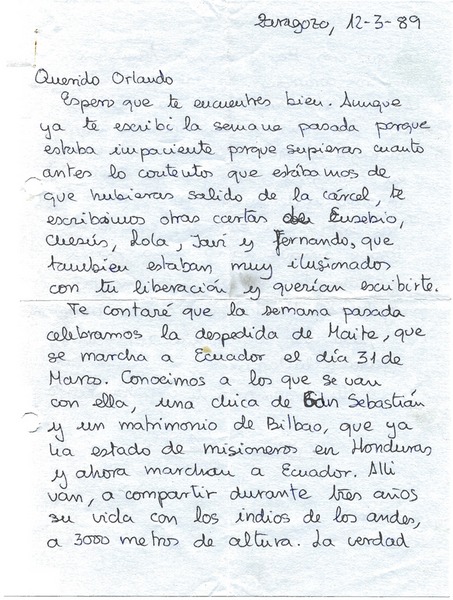 Zaragoza, 12-3-89
Querido Orlando
Espero que te encuentres bien. Aunque
ya te escribí la semana pasada porque
estaba impaciente porque supieras cuanto
antes lo contentos que estábamos de
que hubieras salido de la cárcel, te
escribimos otras cartas Eusebio,
Chesús, Lola, Javi y Fernando, que
también estaban muy ilusionados
con tu liberación y querían escribirte.
Te contaré que la semana pasada
celebramos la despedida de Maite, que
se marcha a Ecuador el día 31 de
Marzo. Conocimos a los que se van
con ella, una chica de San Sebastián
y un matrimonio de Bilbao, que ya
ha estado de misioneros en Honduras
y ahora marchan a Ecuador. Allí
van, a compartir durante tres años
su vida con los indios de los andes,
a 3000 metros de altura. La verdad